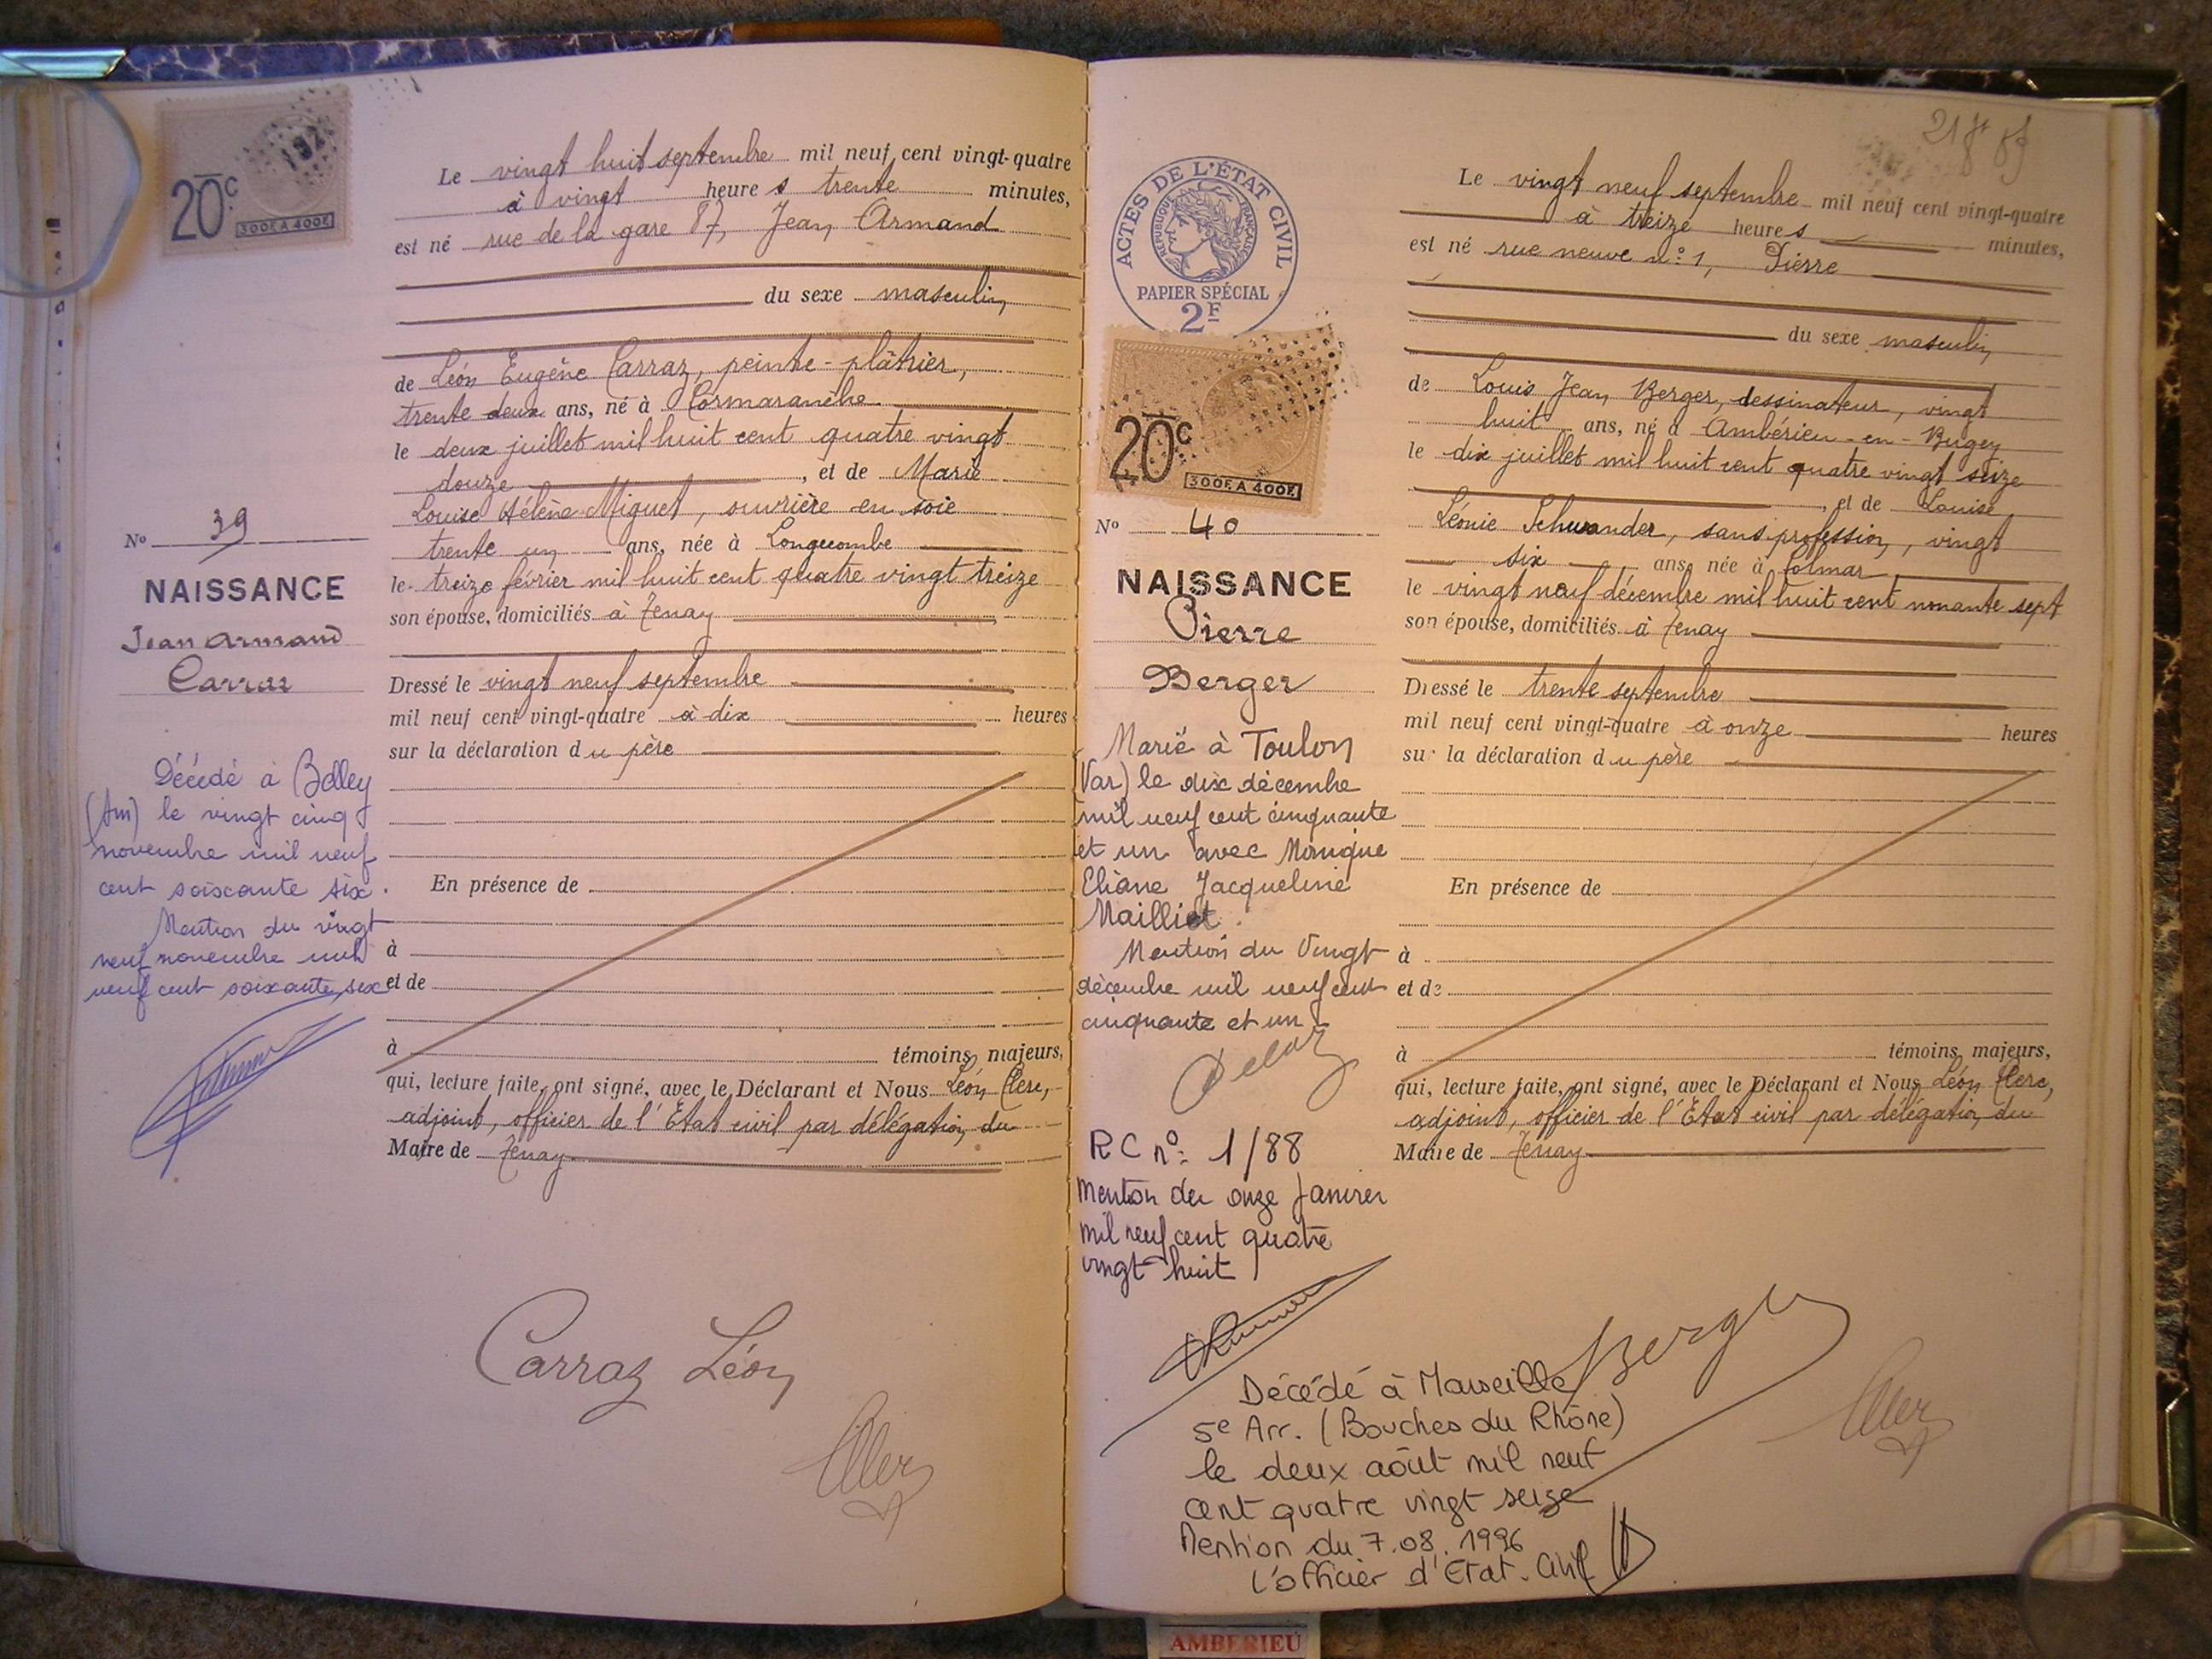 192
20c
300F. A 400F.
Le vingt huit septembre mil neuf cent vingt-quatre
à vingt heures trente minutes,
est né rue de la gare 87, Jean Armand
du sexe masculin
de Léon Eugène Carraz, peintre-plâtrier,
trente deux ans, né à Cormaranche
le deux juillet mil huit cent quatre vingt
douze, et de Marie
Louise Hélène Miguet, ouvrière en soie
trente un ans, née à Longecombe
le treize février mil huit cent quatre vingt treize
son épouse, domiciliés à Tenay
Dressé le vingt neuf septembre
mil neuf cent vingt-quatre à dix heures
sur la déclaration du père
En présence de
à
et de
à témoins majeurs,
qui, lecture faite, ont signé, avec le Déclarant et Nous Léon Clerc,
adjoint, officier de l'Etat civil par délégation du
Maire de Tenay
No 39
NAISSANCE
Jean Armand
Carraz
Décédé à Belley
(Ain) le vingt cinq
novembre mil neuf
cent soixante six.
Mention du vingt
neuf novembre mil
neuf cent soixante six
Carraz Léon
ACTES DE L'ÉTAT CIVIL
RÉPUBLIQUE FRANÇAISE
PAPIER SPÉCIAL
2F
20c
300F. A 400F.
No 40
NAISSANCE
Pierre
Berger
Marié à Toulon
(Var) le dix décembre
mil neuf cent cinquante
et un avec Monique
Eliane Jacqueline
Mailliet.
Mention du Vingt
décembre mil neuf cent
cinquante et un
RC no: 1/88
Mention du onze Janvier
mil neuf cent quatre
vingt huit
Le vingt neuf septembre mil neuf cent vingt-quatre
à treize heures minutes,
est né rue neuve no: 1, Pierre
du sexe masculin
de Louis Jean Berger, dessinateur, vingt
huit ans, né à Ambérieu-en-Bugey
le dix juillet mil huit cent quatre vingt seize
, et de Louise
Léonie Schwander, sans profession, vingt
six ans, née à Colmar
le vingt neuf décembre mil huit cent nonante sept
son épouse, domiciliés à Tenay
Dressé le trente septembre
mil neuf cent vingt-quatre à onze heures
sur la déclaration du père
En présence de
à
et de
à témoins majeurs,
qui, lecture faite, ont signé, avec le Déclarant et Nous Léon Clerc,
adjoint, officier de l'Etat civil par délégation du
Maire de Tenay
Berger
Décédé à Marseille
5e Arr. (Bouches du Rhône)
le deux août mil neuf
cent quatre vingt seize
Mention du 7.08.1996
L'officier d'Etat-Civil
AMBERIEU